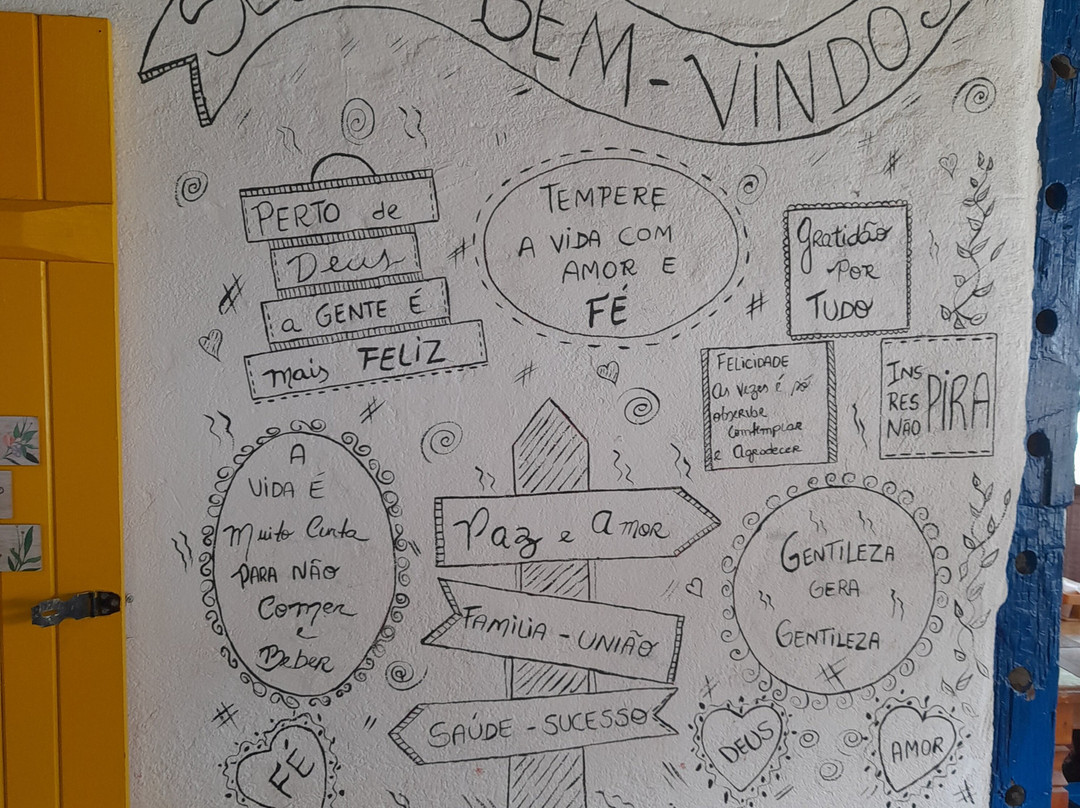 BEM-VINDOS
PERTO de
Deus
a GENTE É
mais FELIZ
TEMPERE
A VIDA COM
AMOR E
FÉ
Gratidão
POR
TUDO
FELICIDADE
As vezes é só
observar
Comtemplar
e Agradecer
INS
RES
NÃO
PIRA
A
VIDA É
Muito Curta
PARA NÃO
Comer
e
Beber
Paz e Amor
FAMILIA - UNIÃO
SAÚDE - SUCESSO
GENTILEZA
GERA
GENTILEZA
FÉ
DEUS
AMOR